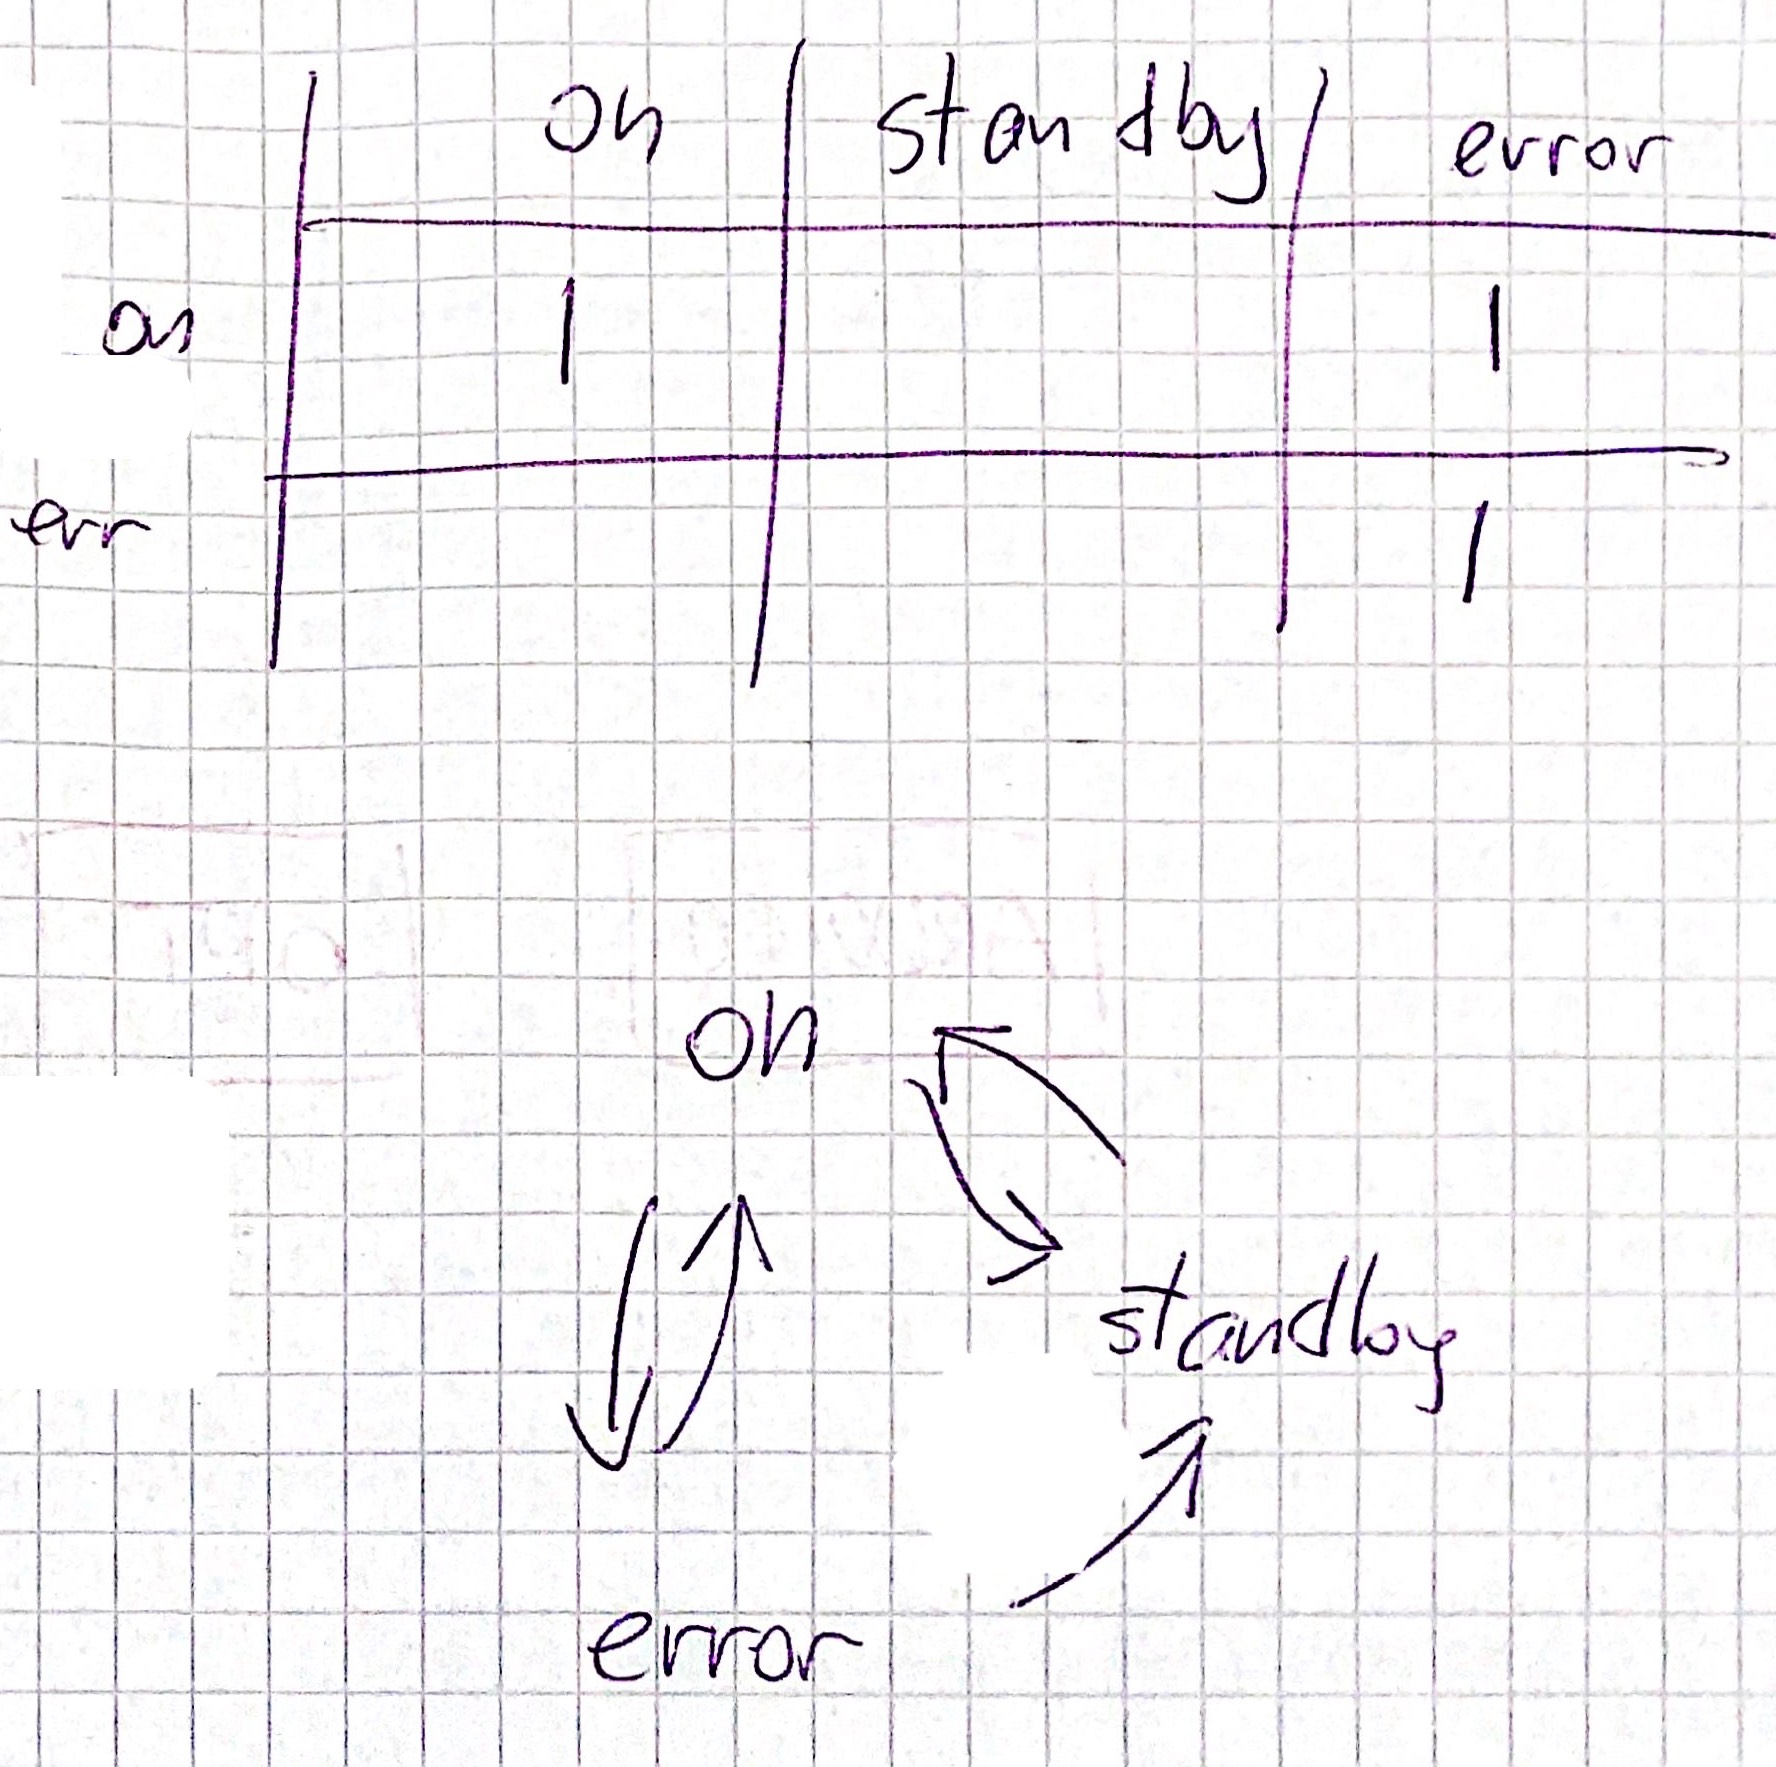 on standby error
on 1 1
err 1
on
standby
error